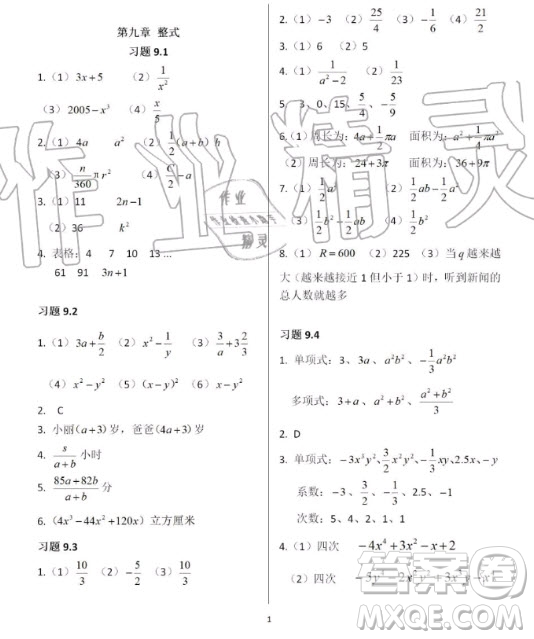 第九章 整式
习题 9.1
1.（1）3x+5 （2）1/x²
（3）2005−x³ （4）x/5
2.（1）4a a² （2）1/2(a+b)h
（3）n/360 πr² （4）C/2−a
3.（1）11 2n−1
（2）36 k²
4. 表格：4 7 10 13…
61 91 3n+1
习题 9.2
1.（1）3a+b/2 （2）x²−1/y （3）3/a+3 2/3
（4）x²−y² （5）(x−y)²
2. C
3. 小丽(a+3)岁，爸爸(4a+3)岁
4. s/(a+b) 小时
5. (85a+82b)/(a+b) 分
6.（4x³−44x²+120x）立方厘米
习题 9.3
1.（1）10/3 （2）−5/2 （3）10/3
2.（1）−3 （2）25/4 （3）−1/6 （4）21/2
3.（1）6 （2）5
4.（1）1/(a²−2) （2）1/23
5. 3、0、15、5/4、−5/9
6.（1）周长为：4a+1/2πa 面积为：a²+1/4πa²
（2）周长为：24+3π 面积为：36+9π
7.（1）1/2a² （2）1/2ab−1/2a²
（3）1/2b²−1/2ab （4）1/2b²
8.（1）R=600 （2）225 （3）当q越来越
大（越来越接近1但小于1）时，听到新闻的
总人数就越多
习题 9.4
1. 单项式：3、3a、a²b²、−1/3a²b²
多项式：3+a、a²+b²、(a²+b²)/3
2. D
3. 单项式：−3x³y²、3/2x²y²、−1/3xy、2.5x、−y
系数：−3、3/2、−1/3、2.5、−1
次数：5、4、2、1、1
4.（1）四次 −4x⁴+3x²−x+2
（2）四次
1
作业精灵
作业
精灵
答案圈